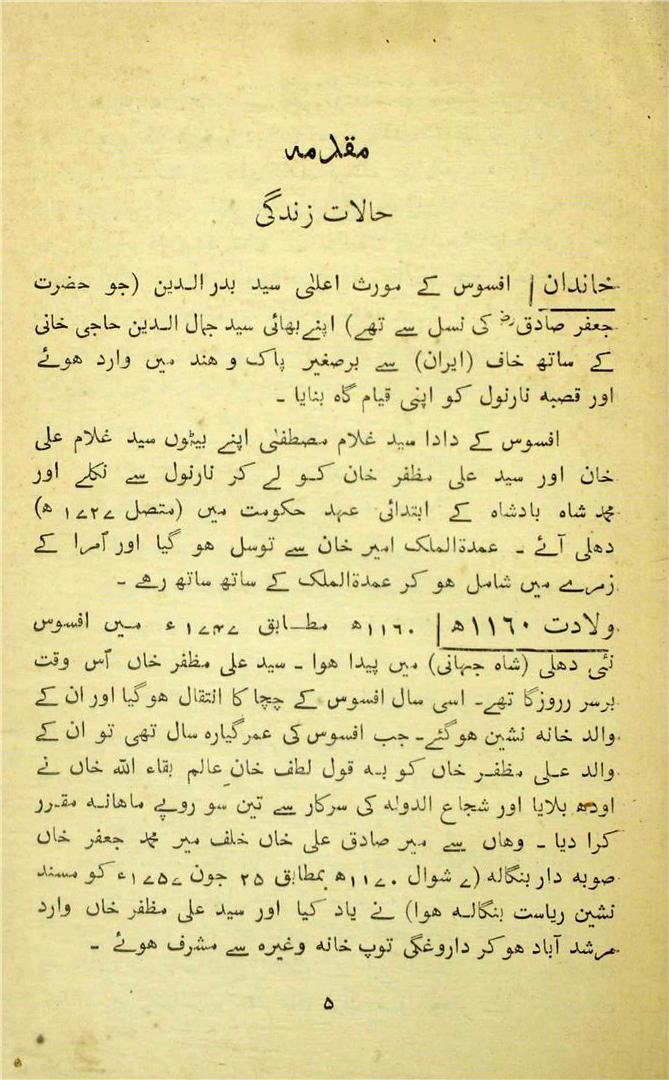 مقدمہ
حالات زندگی
خاندان | افسوس کے مورث اعلیٰ سید بدر الدین (جو حضرت
جعفر صادقؓ کی نسل سے تھے) اپنے بھائی سید جمال الدین حاجی خانی
کے ساتھ خاف (ایران) سے برصغیر پاک و ہند میں وارد ہوئے
اور قصبہ نارنول کو اپنی قیام گاہ بنایا ۔
افسوس کے دادا سید غلام مصطفیٰ اپنے بیٹوں سید غلام علی
خان اور سید علی مظفر خان کو لے کر نارنول سے نکلے اور
محمد شاہ بادشاہ کے ابتدائی عہد حکومت میں (متصل ۱۷۲۷ ھ)
دھلی آئے ۔ عمدۃالملک امیر خان سے توسل ہو گیا اور اُمرا کے
زمرے میں شامل ہو کر عمدۃالملک کے ساتھ ساتھ رہے ۔
ولادت ۱۱۶۰ھ | ۱۱۶۰ھ مطابق ۱۷۴۷ ء میں افسوس
نئی دھلی (شاہ جہانی) میں پیدا ہوا ۔ سید علی مظفر خاں اُس وقت
برسر رروزگا تھے۔ اسی سال افسوس کے چچا کا انتقال ہوگیا اور ان کے
والد خانہ نشین ہوگئے۔ جب افسوس کی عمر گیارہ سال تھی تو ان کے
والد علی مظفر خاں کو بہ قول لطف خان عالم بقاء اللہ خاں نے
اودھ بلایا اور شجاع الدولہ کی سرکار سے تین سو روپے ماہانہ مقرر
کرا دیا ۔ وھاں سے میر صادق علی خاں خلف میر محمد جعفر خاں
صوبہ دار بنگالہ (۷ شوال ۱۱۷۰ھ بمطابق ۲۵ جون ۱۷۵۷ء کو مسند
نشین ریاست بنگالہ ہوا) نے یاد کیا اور سید علی مظفر خاں وارد
مرشد آباد ہوکر داروغگی توپ خانہ وغیرہ سے مشرف ہوئے ۔
۵